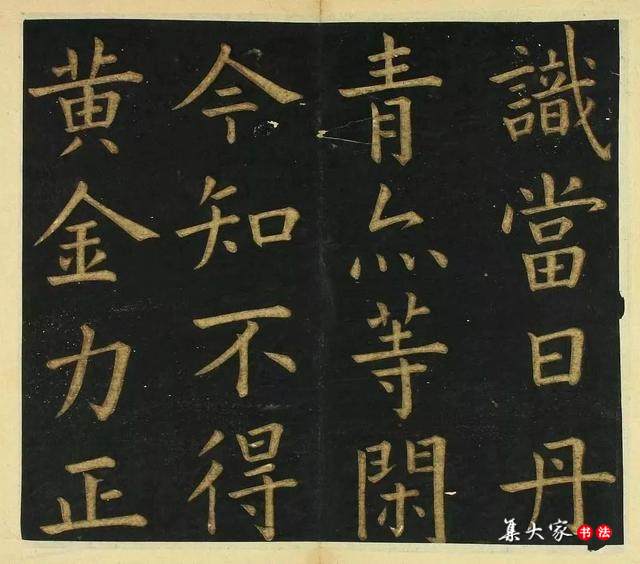 識當日丹
青亦等閑
今知不得
黄金力正
集大家书法